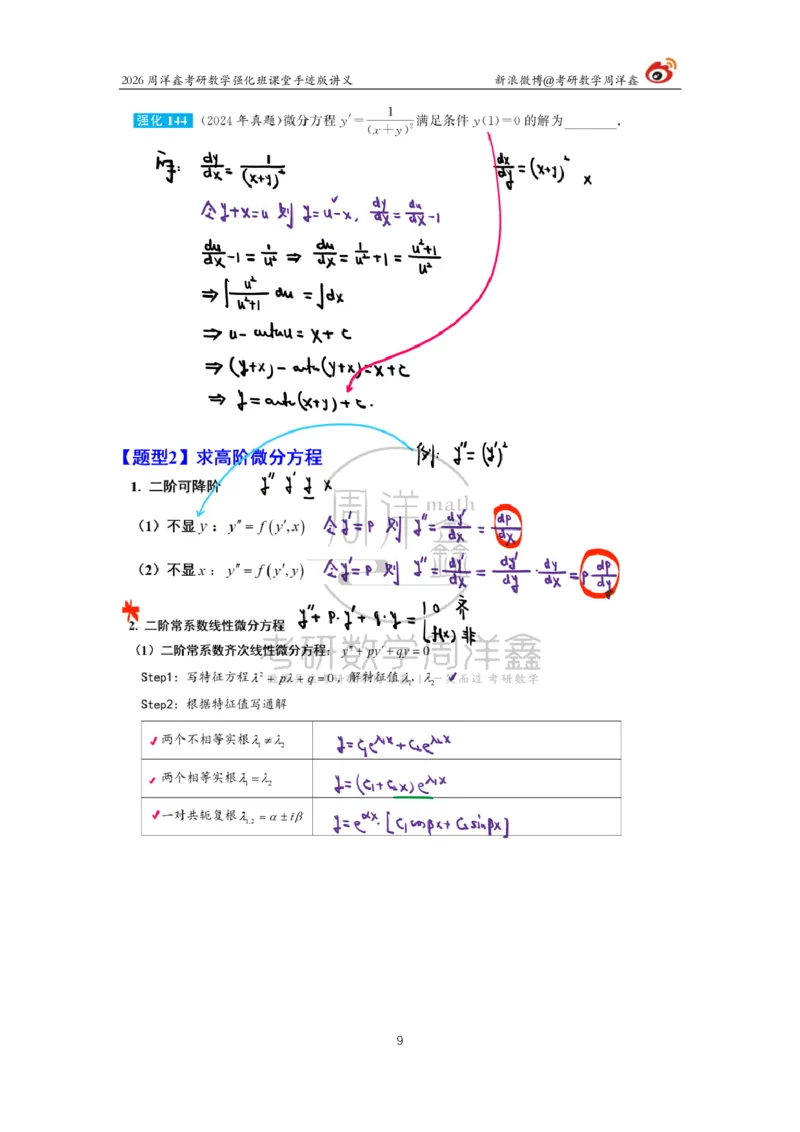 2026周洋鑫考研数学强化班课堂手迹版讲义 新浪微博@考研数学周洋鑫
强化 144 (2024年真题)微分方程 y′=1/(x+y)² 满足条件 y(1)=0 的解为________.
dy/dx = 1/(x+y)²
dx/dy = (x+y)² x
令y+x=u 则 y=u-x, dy/dx = du/dx -1
du/dx -1 = 1/u² ⇒ du/dx = 1/u² +1 = (u²+1)/u²
⇒ ∫ u²/(u²+1) du = ∫dx
⇒ u- arctanu = x+c
⇒ (y+x) - arctan(y+x) = x+c
⇒ y = arctan(x+y)+c.
【题型2】求高阶微分方程
例: y″=(y′)²
1. 二阶可降阶 y″ y′ y x
周洋鑫 math
(1) 不显 y: y″=f(y′,x) 令y′=p 则 y″ = dy′/dx = dp/dx
(2) 不显 x: y″=f(y′,y) 令y′=p 则 y″ = dy′/dx = dy′/dy · dy/dx = p dp/dy
2. 二阶常系数线性微分方程 y″+p·y′+q·y = { 0 齐
f(x) 非
考研数学周洋鑫
(1) 二阶常系数齐次线性微分方程: y″+py′+qy=0
Step1: 写特征方程λ²+pλ+q=0, 解特征值λ₁,λ₂
Step2: 根据特征值写通解
两个不相等实根λ₁≠λ₂ y=c₁e^λ₁x+c₂e^λ₂x
两个相等实根λ₁=λ₂ y=(c₁+c₂x)e^λ₁x
一对共轭复根λ₁,₂=α±iβ y=e^αx·[c₁cosβx+c₂sinβx]
9